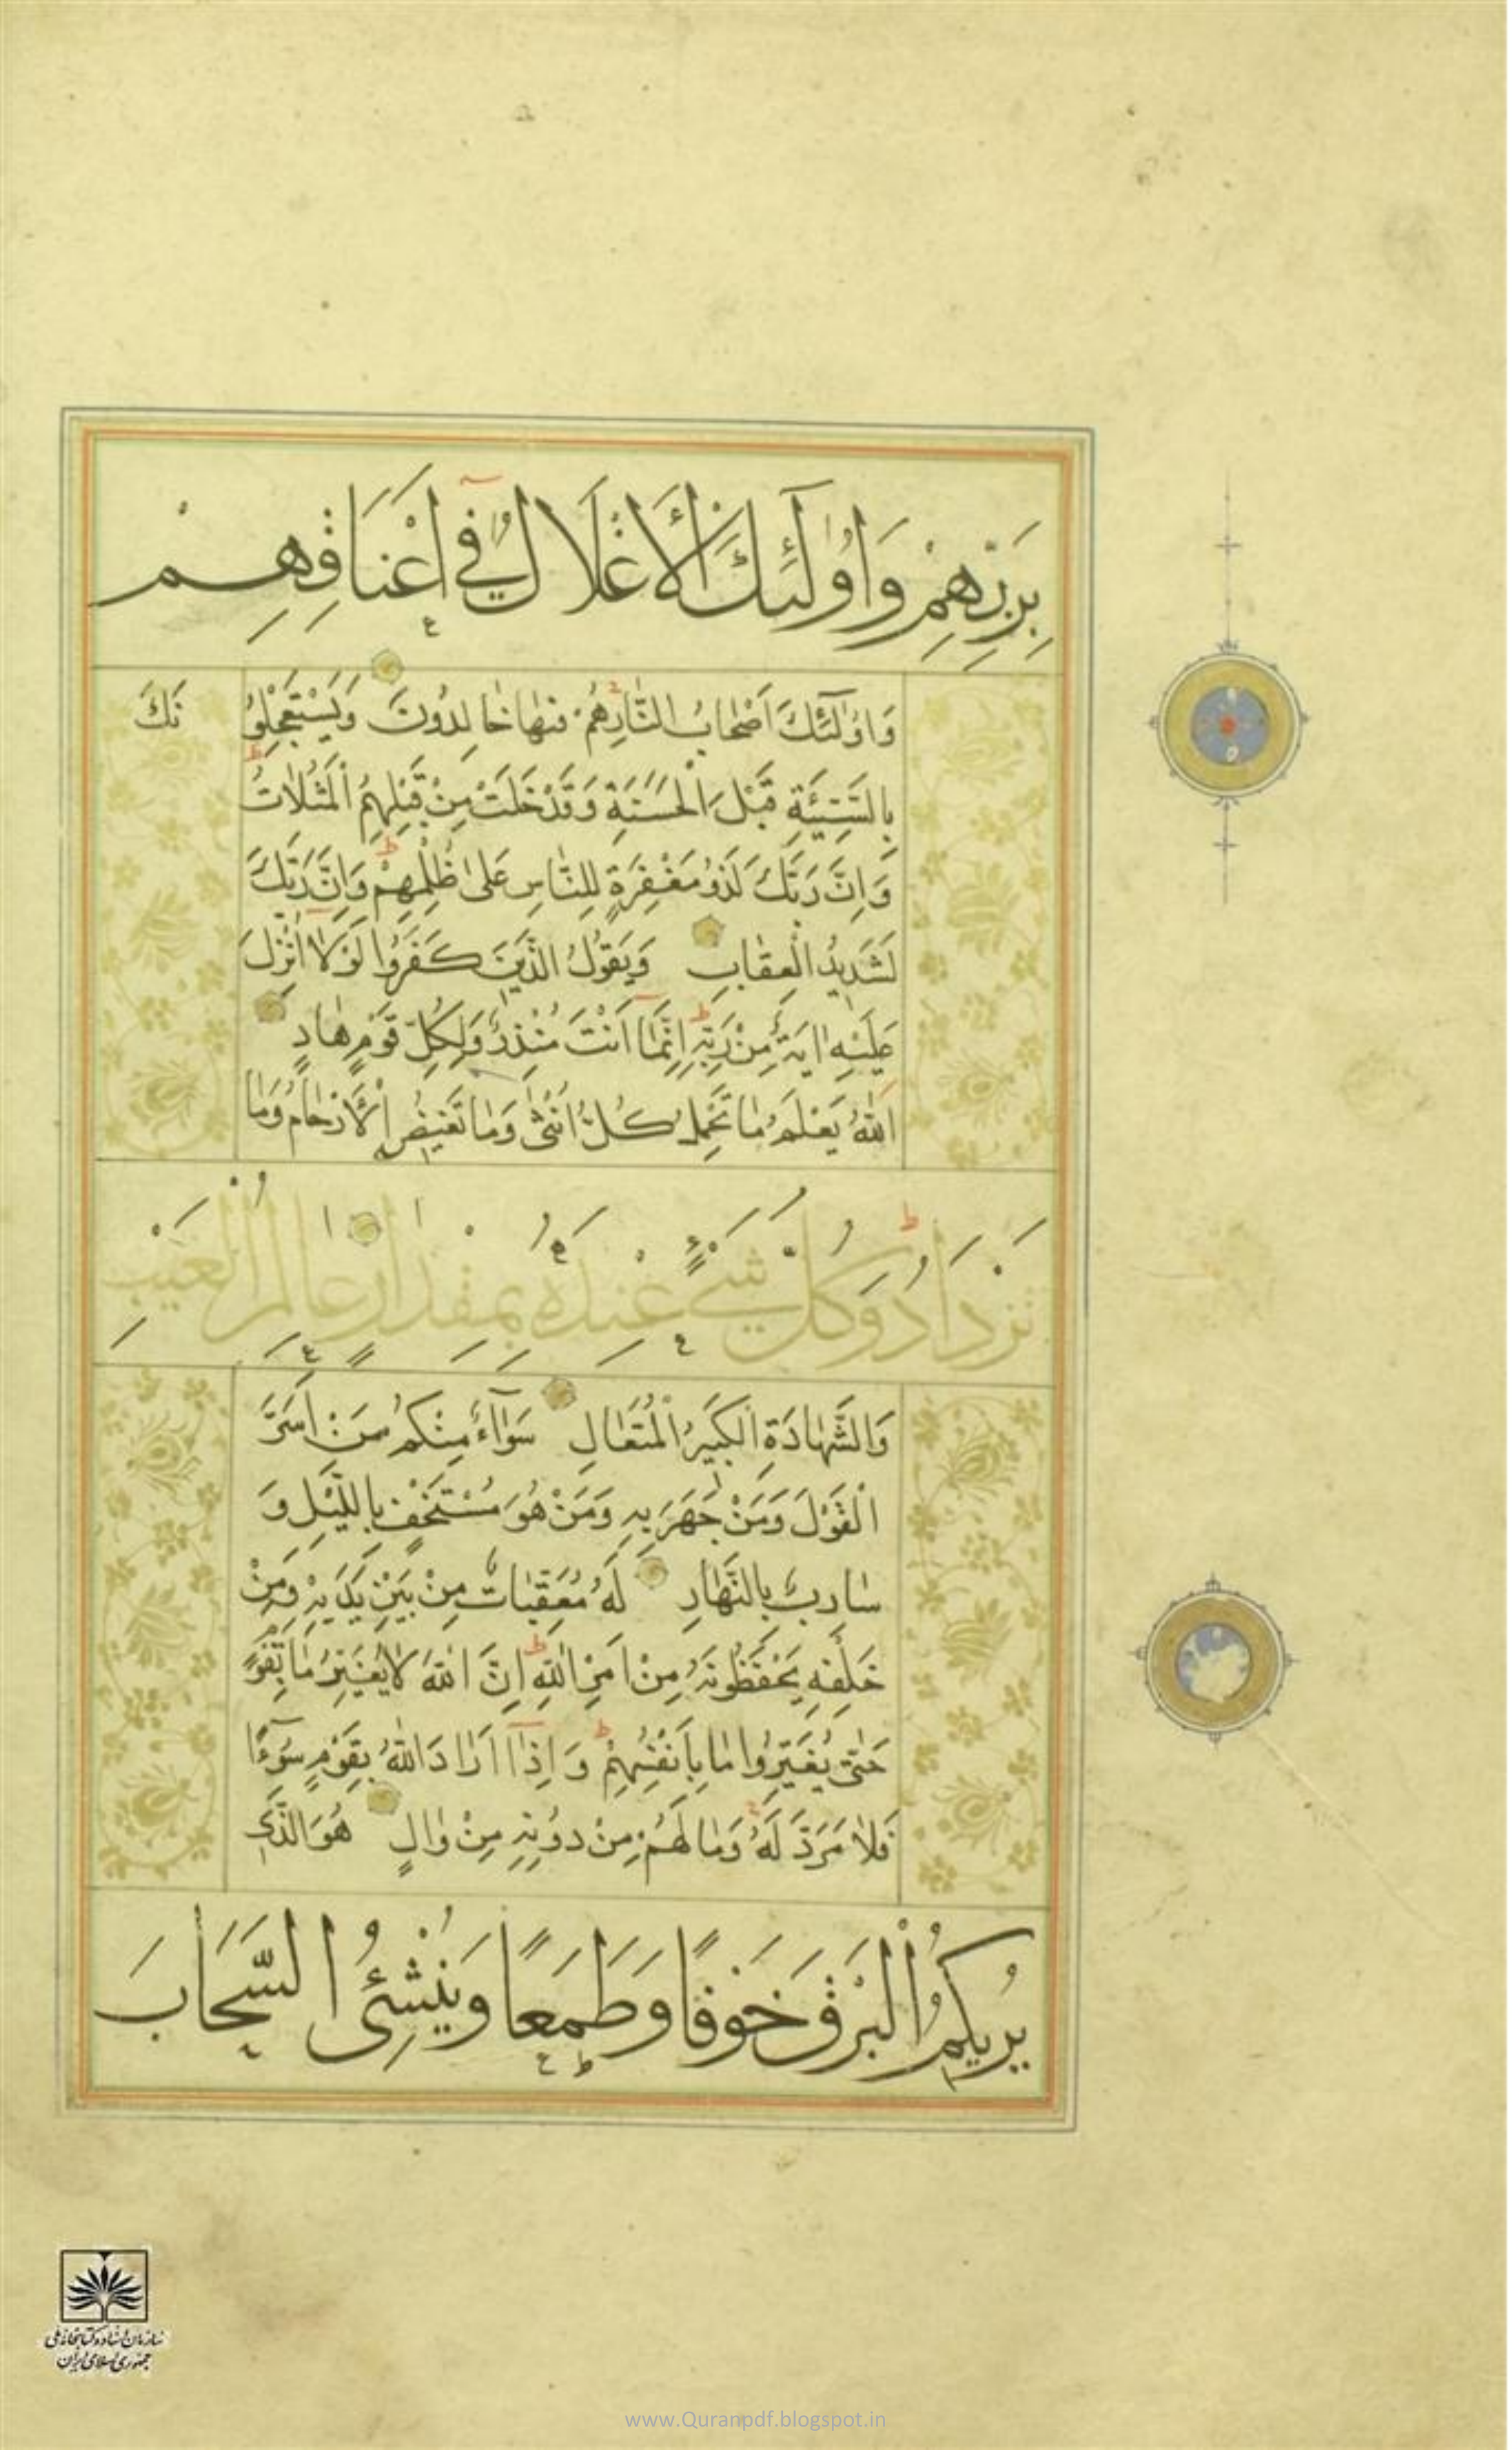 بِرَبِّهِمْ وَاُولٰٓئِكَ الْاَغْلَالُ فِي اَعْنَاقِهِمْ
وَاُولٰٓئِكَ اَصْحَابُ النَّارِ هُمْ فِيهَا خَالِدُونَ وَيَسْتَعْجِلُو نَكَ
بِالسَّيِّئَةِ قَبْلَ الْحَسَنَةِ وَقَدْ خَلَتْ مِنْ قَبْلِهِمُ الْمَثُلَاتُ
وَاِنَّ رَبَّكَ لَذُو مَغْفِرَةٍ لِلنَّاسِ عَلٰى ظُلْمِهِمْ وَاِنَّ رَبَّكَ
لَشَدِيدُ الْعِقَابِ وَيَقُولُ الَّذِينَ كَفَرُوا لَوْلَا اُنْزِلَ
عَلَيْهِ اٰيَةٌ مِنْ رَبِّهِ اِنَّمَا اَنْتَ مُنْذِرٌ وَلِكُلِّ قَوْمٍ هَادٍ
اَللّٰهُ يَعْلَمُ مَا تَحْمِلُ كُلُّ اُنْثٰى وَمَا تَغِيضُ الْاَرْحَامُ وَمَا
تَزْدَادُ وَكُلُّ شَيْءٍ عِنْدَهُ بِمِقْدَارٍ عَالِمُ الْغَيْبِ
وَالشَّهَادَةِ الْكَبِيرُ الْمُتَعَالِ سَوَآءٌ مِنْكُمْ مَنْ اَسَرَّ
الْقَوْلَ وَمَنْ جَهَرَ بِهِ وَمَنْ هُوَ مُسْتَخْفٍ بِاللَّيْلِ وَ
سَارِبٌ بِالنَّهَارِ لَهُ مُعَقِّبَاتٌ مِنْ بَيْنِ يَدَيْهِ وَمِنْ
خَلْفِهِ يَحْفَظُونَهُ مِنْ اَمْرِ اللّٰهِ اِنَّ اللّٰهَ لَا يُغَيِّرُ مَا بِقَوْمٍ
حَتّٰى يُغَيِّرُوا مَا بِاَنْفُسِهِمْ وَاِذَآ اَرَادَ اللّٰهُ بِقَوْمٍ سُوٓءًا
فَلَا مَرَدَّ لَهُ وَمَا لَهُمْ مِنْ دُونِهِ مِنْ وَالٍ هُوَ الَّذِي
يُرِيكُمُ الْبَرْقَ خَوْفًا وَطَمَعًا وَيُنْشِئُ السَّحَابَ
سازمان اسناد و کتابخانه ملی
جمهوری اسلامی ایران
www.Quranpdf.blogspot.in